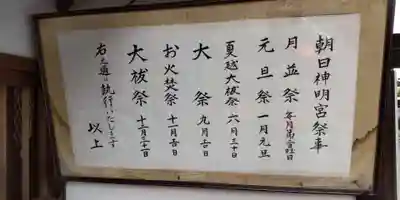 朝日神明宮祭事
月並祭 各月
元旦祭 一月元旦
夏越大祓祭 六月三十日
大祭 九月
お火焚祭 十一月
大祓祭 十二月三十一日
右之通り執行いたします
以上